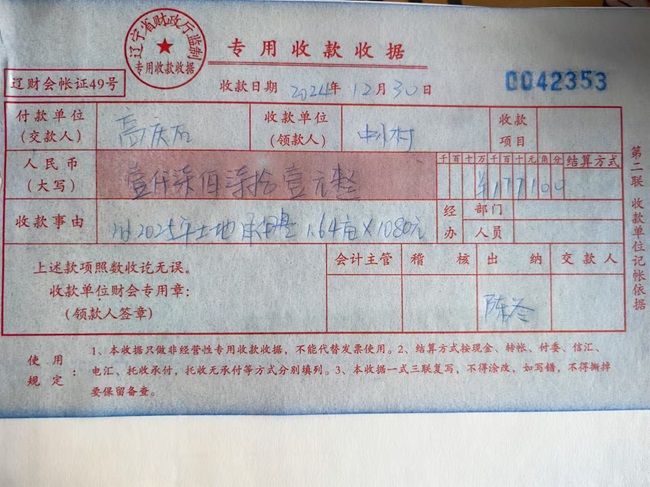 辽宁省财政厅监制
专用收款收据
专用收款收据
辽财会帐证49号
收款日期 2024年12月30日
0042353
付款单位
(交款人)
收款单位
(领款人)
收款
项目
人民币
(大写)
壹仟柒佰柒拾壹元整
千百十万千百十元角分
¥177100
结算方式
收款事由
2025年土地承包费 1.64亩×1080元
经办
部门
人员
上述款项照数收讫无误。
收款单位财会专用章:
(领款人签章)
会计主管
稽核
出纳
交款人
第二联 收款单位记帐依据
使用规定:
1、本收据只做非经营性专用收款收据,不能代替发票使用。2、结算方式按现金、转帐、付委、信汇、
电汇、托收承付,托收无承付等方式分别填列。3、本收据一式三联复写,不得涂改,如写错,不得撕掉
要保留备查。